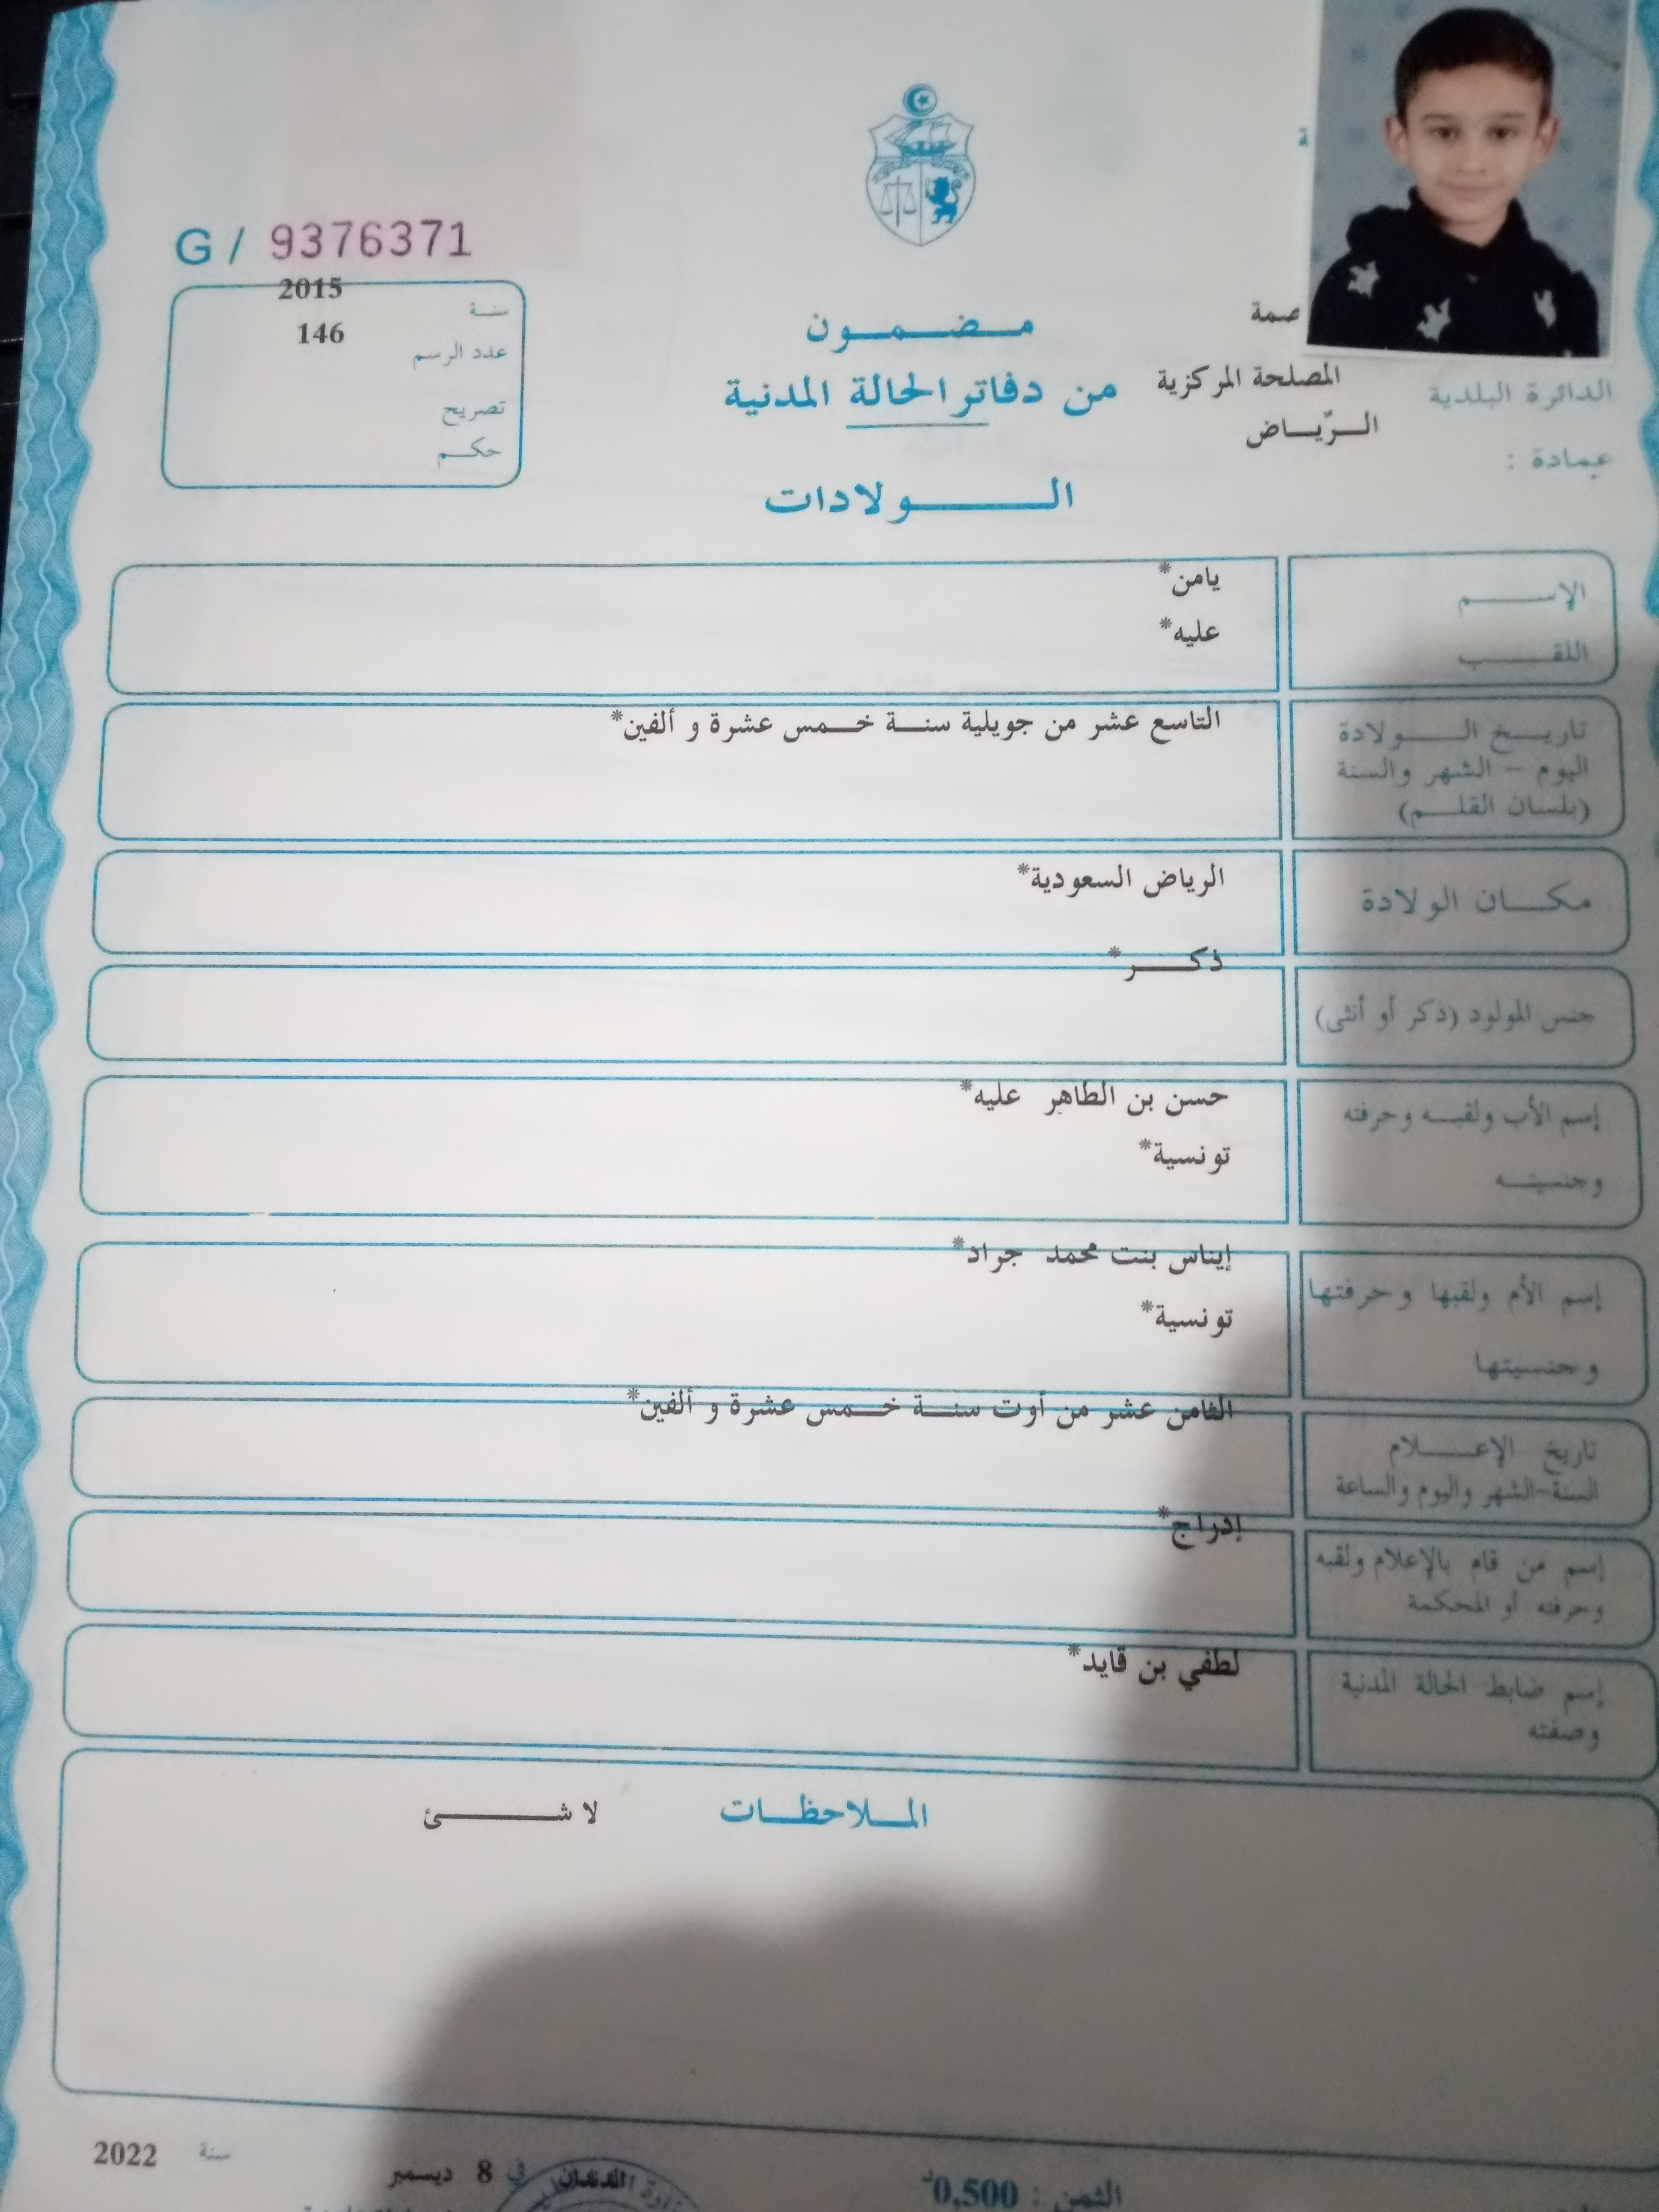 G / 9376371
سنة 2015
عدد الرسم 146
تصريح
حكم
مضمون
من دفاتر الحالة المدنية
الولادات
المصلحة المركزية
الدائرة البلدية
الرّياض
عمادة :
الإسم يامن*
اللقب عليه*
تاريخ الولادة التاسع عشر من جويلية سنة خمس عشرة و ألفين*
اليوم - الشهر والسنة
(بلسان القلم)
مكان الولادة الرياض السعودية*
ذكر*
جنس المولود (ذكر أو أنثى)
إسم الأب ولقبه وحرفته حسن بن الطاهر عليه*
وجنسيته تونسية*
إيناس بنت محمد جراد*
إسم الأم ولقبها وحرفتها
تونسية*
وجنسيتها
الثامن عشر من أوت سنة خمس عشرة و ألفين*
تاريخ الإعلام
السنة-الشهر واليوم والساعة
إدراج*
إسم من قام بالإعلام ولقبه
وحرفته أو المحكمة
لطفي بن قايد*
إسم ضابط الحالة المدنية
وصفته
الملاحظات لا شئ
الثمن : 0,500د
في 8 ديسمبر سنة 2022